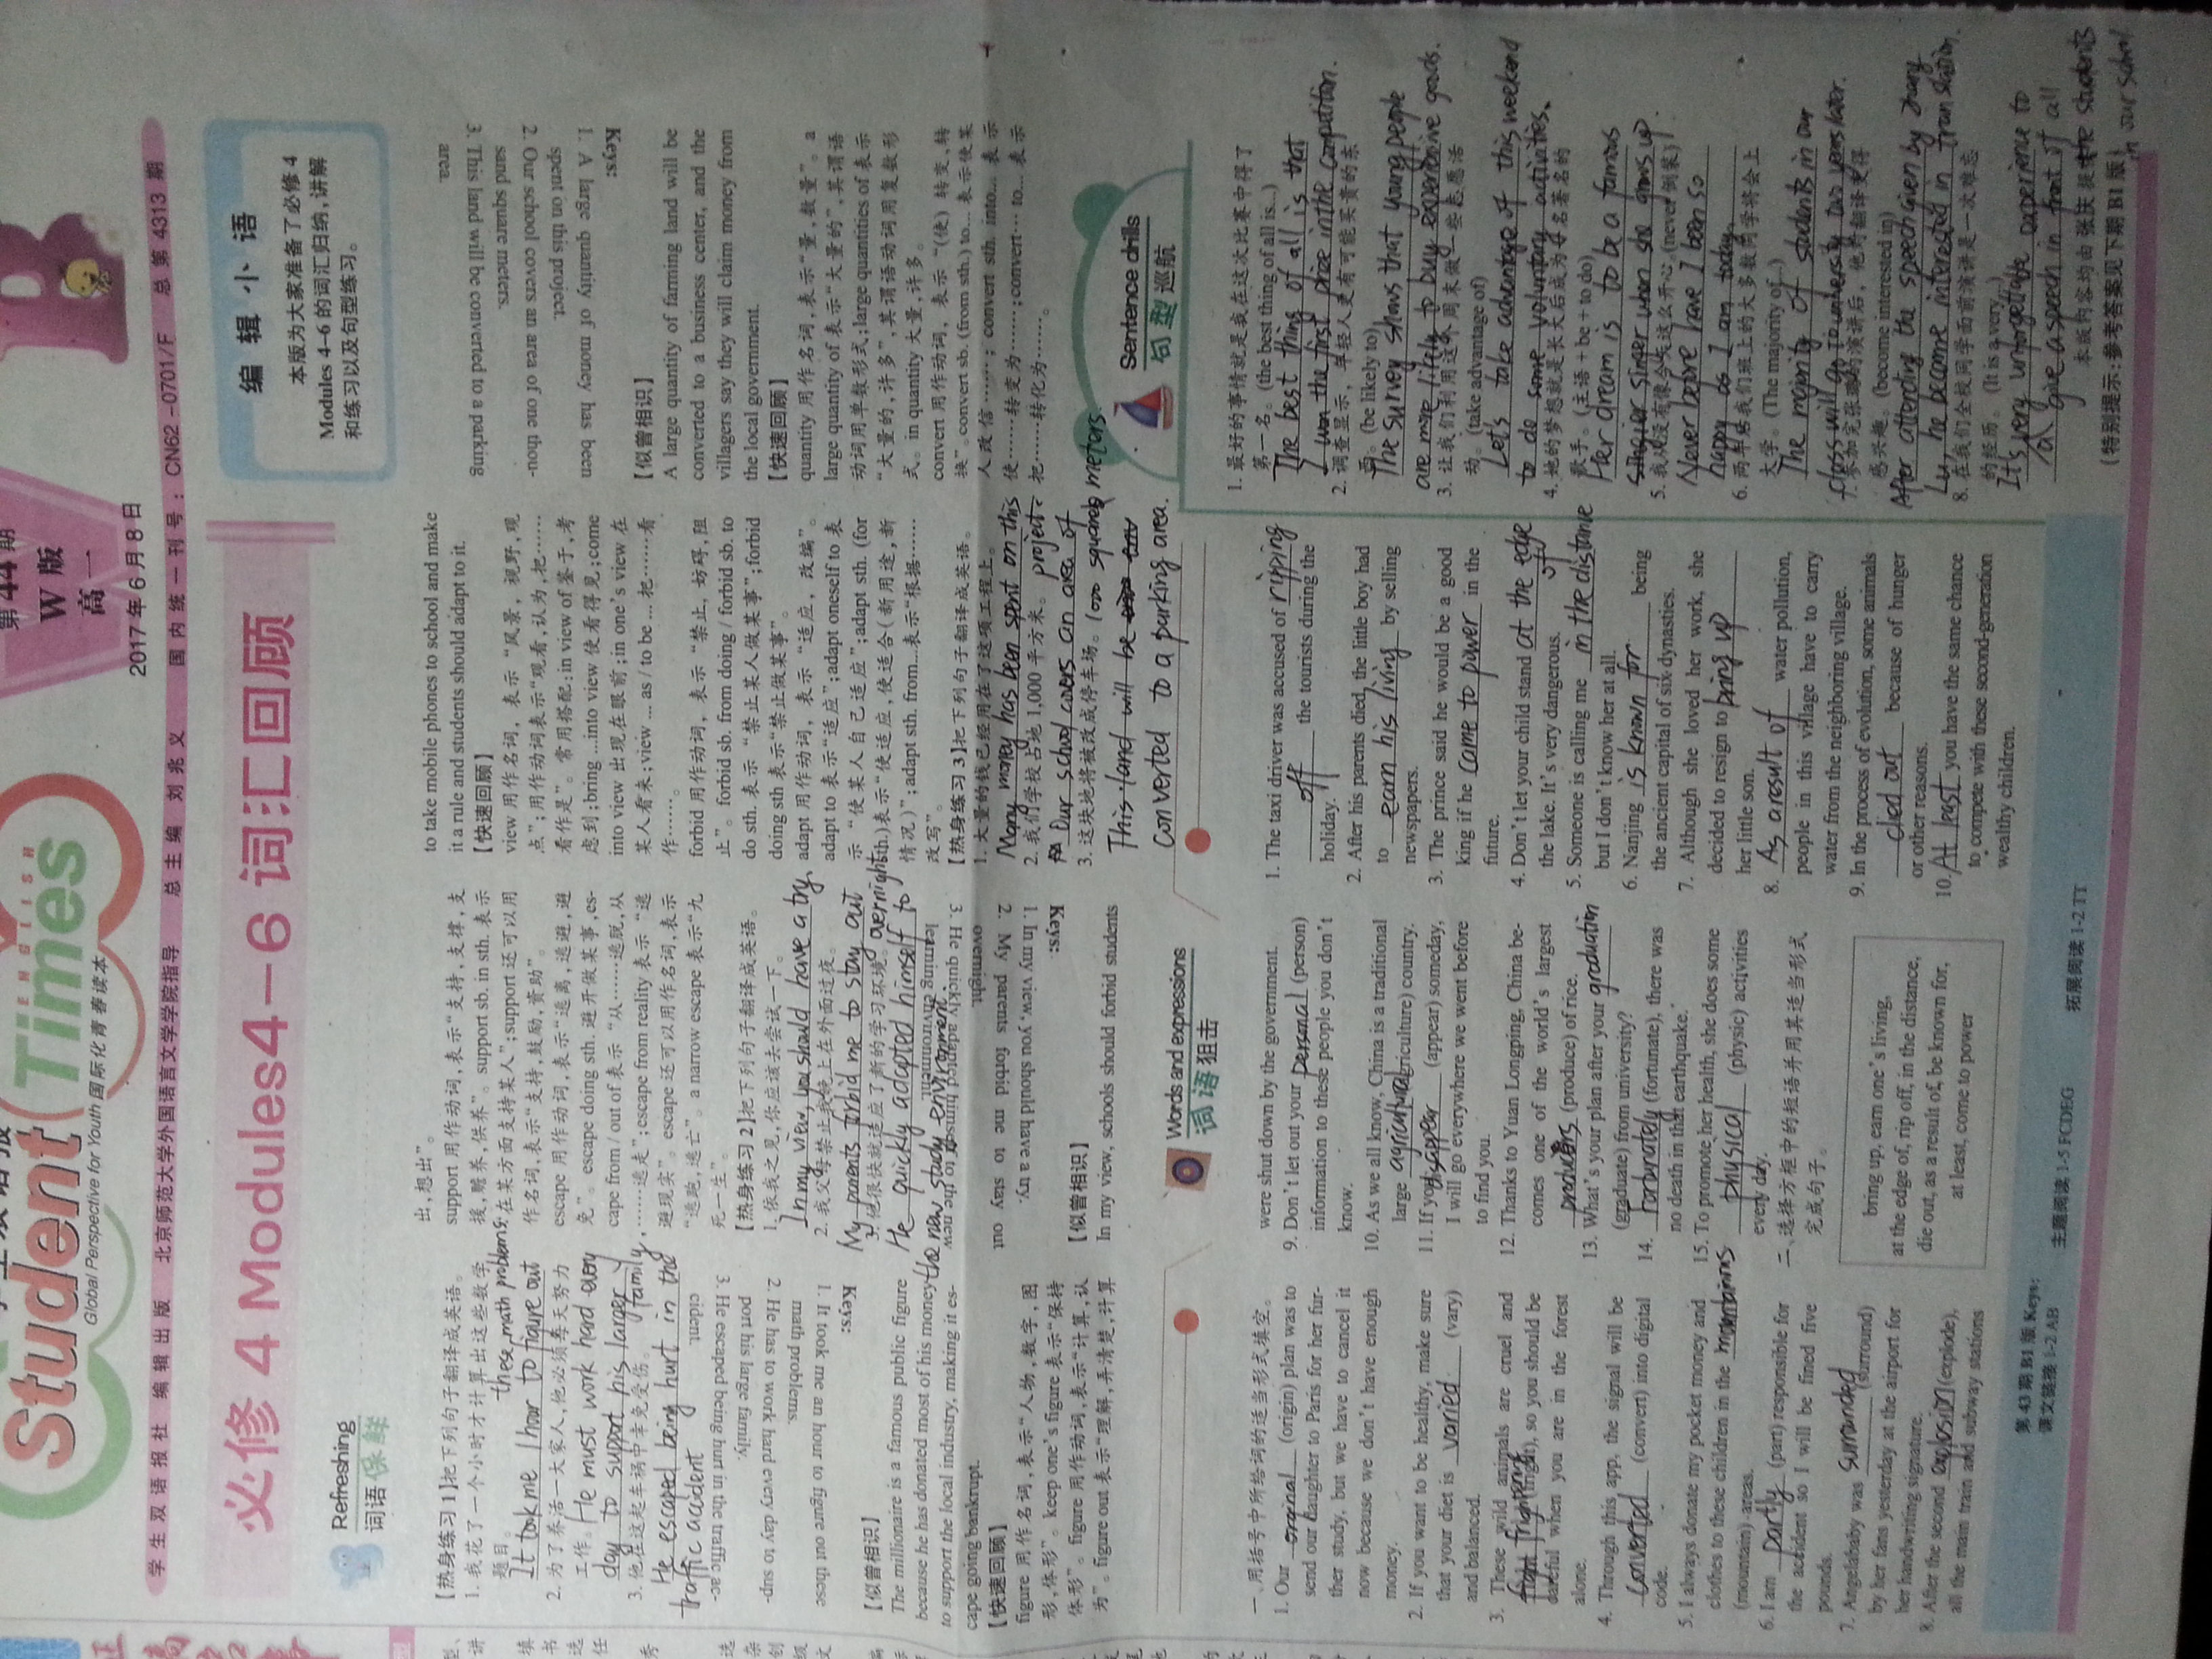 Student Times
ENGLISH
Global Perspective for Youth 国际化青春读本
第44期
W 版
高一
2017年6月8日
学生双语报社 编辑出版 北京师范大学外国语言文学学院指导 总主编 刘兆义 国内统一刊号：CN62-0701/F 总第4313期
必修 4 Modules4-6 词汇回顾
编辑小语
本版为大家准备了必修4
Modules 4-6 的词汇归纳,讲解
和练习以及句型练习。
Refreshing
词语保鲜
【热身练习1】把下列句子翻译成英语。
1. 我花了一个小时才计算出这些数学
题目。
these math problems.
It took me 1 hour to figure out
2. 为了养活一大家人,他必须每天努力
工作。He must work hard every
day to support his larger
family.
3. 他在这起车祸中幸免受伤。
He escaped being hurt in the
traffic accident
Keys:
1. It took me an hour to figure out these
math problems.
2. He has to work hard every day to sup-
port his large family.
3. He escaped being hurt in the traffic ac-
cident.
【似曾相识】
The millionaire is a famous public figure
because he has donated most of his money
to support the local industry, making it es-
cape going bankrupt.
【快速回顾】
figure 用作名词,表示“人物,数字,图
形,体形”。keep one's figure 表示“保持
体形”。figure 用作动词,表示“计算,认
为”。figure out 表示“理解,弄清楚,计算
出,想出”。
support 用作动词,表示“支持,支撑,支
援,赡养,供养”。support sb. in sth. 表示
“在某方面支持某人”;support 还可以用
作名词,表示“支持,鼓励,资助”。
escape 用作动词,表示“逃离,逃避,避
免”。escape doing sth. 避开做某事,es-
cape from / out of 表示“从……逃脱,从
……逃走”;escape from reality 表示“逃
避现实”。escape 还可以用作名词,表示
“逃跑,逃亡”。a narrow escape 表示“九
死一生”。
【热身练习2】把下列句子翻译成英语。
1. 依我之见,你应该去尝试一下。
In my view, you should have a try.
2. 我父母禁止我晚上在外面过夜。
My parents forbid me to stay out
overnight
3. 他很快就适应了新的学习环境。
He quickly adapted himself to
the new study environment.
Keys:
1. In my view, you should have a try.
2. My parents forbid me to stay out
overnight.
3. He quickly adapted himself to the new
learning environment.
【似曾相识】
In my view, schools should forbid students
to take mobile phones to school and make
it a rule and students should adapt to it.
【快速回顾】
view 用作名词,表示“风景,视野,观
点”;用作动词表示“观看,认为,把……
看作是”。常用搭配:in view of 鉴于,考
虑到;bring ...into view 使看得见;come
into view 出现在眼前;in one's view 在
某人看来;view ... as / to be ... 把……看
作……。
forbid 用作动词,表示“禁止,妨碍,阻
止”。forbid sb. from doing / forbid sb. to
do sth. 表示“禁止某人做某事”;forbid
doing sth 表示“禁止做某事”。
adapt 用作动词,表示“适应,改编”。
adapt to 表示“适应”;adapt oneself to 表
示“使某人自己适应”;adapt sth. (for
sth.)表示“使适应,使适合(新用途,新
情况)”;adapt sth. from...表示“根据……
改写”。
【热身练习3】把下列句子翻译成英语。
1. 大量的钱已经用在了这项工程上。
Many money has been spent on this
project.
2. 我们学校占地1,000平方米。
Our school covers an area of
1000 square meters.
3. 这块地将被改成停车场。
This land will be
converted to a parking area.
Keys:
1. A large quantity of money has been
spent on this project.
2. Our school covers an area of one thou-
sand square meters.
3. This land will be converted to a parking
area.
【似曾相识】
A large quantity of farming land will be
converted to a business center, and the
villagers say they will claim money from
the local government.
【快速回顾】
quantity 用作名词,表示“量,数量”。a
large quantity of 表示“大量的”,其谓语
动词用单数形式;large quantities of 表示
“大量的,许多”,其谓语动词用复数形
式。in quantity 大量,许多。
convert 用作动词,表示“(使)转变,转
换”。convert sb. (from sth.) to... 表示使某
人改信……; convert sth. into... 表示
使……转变为……;convert… to... 表示
把……转化为……。
Words and expressions
词语狙击
一、用括号中所给词的适当形式填空。
1. Our orginal (origin) plan was to
send our daughter to Paris for her fur-
ther study, but we have to cancel it
now because we don't have enough
money.
2. If you want to be healthy, make sure
that your diet is varied (vary)
and balanced.
3. These wild animals are cruel and
frightening (fright), so you should be
careful when you are in the forest
alone.
4. Through this app, the signal will be
converted (convert) into digital
code.
5. I always donate my pocket money and
clothes to these children in the mountainous
(mountain) areas.
6. I am partly (part) responsible for
the accident so I will be fined five
pounds.
7. Angelababy was surrounded (surround)
by her fans yesterday at the airport for
her handwriting signature.
8. After the second explosion (explode),
all the main train and subway stations
were shut down by the government.
9. Don't let out your personal (person)
information to these people you don't
know.
10. As we all know, China is a traditional
large agricultural (agriculture) country.
11. If you disappear (appear) someday,
I will go everywhere we went before
to find you.
12. Thanks to Yuan Longping, China be-
comes one of the world's largest
producers (produce) of rice.
13. What's your plan after your graduation
(graduate) from university?
14. Fortunately (fortunate), there was
no death in that earthquake.
15. To promote her health, she does some
physical (physic) activities
every day.
二、选择方框中的短语并用其适当形式
完成句子。
bring up, earn one's living,
at the edge of, rip off, in the distance,
die out, as a result of, be known for,
at least, come to power
1. The taxi driver was accused of ripping
off the tourists during the
holiday.
2. After his parents died, the little boy had
to earn his living by selling
newspapers.
3. The prince said he would be a good
king if he came to power in the
future.
4. Don't let your child stand at the edge
of
the lake. It's very dangerous.
5. Someone is calling me in the distance
but I don't know her at all.
6. Nanjing is known for being
the ancient capital of six dynasties.
7. Although she loved her work, she
decided to resign to bring up
her little son.
8. As a result of water pollution,
people in this village have to carry
water from the neighboring village.
9. In the process of evolution, some animals
died out because of hunger
or other reasons.
10. At least you have the same chance
to compete with these second-generation
wealthy children.
Sentence drills
句型巡航
1. 最好的事情就是我在这次比赛中得了
第一名。(the best thing of all is...)
The best thing of all is that
I won the first prize in the competition.
2. 调查显示，年轻人更有可能买贵的东
西。(be likely to)
The survey shows that young people
are more likely to buy expensive goods.
3. 让我们利用这个周末做一些志愿活
动。(take advantage of)
Let's take advantage of this weekend
to do some voluntary activities.
4. 她的梦想就是长大后成为一名著名的
歌手。(主语+be+to do)
Her dream is to be a famous
singer when she grows up.
5. 我从没有像今天这么开心。(never 倒装)
Never before have I been so
happy as I am today.
6. 两年后我们班上的大多数同学将会上
大学。(The majority of...)
The majority of students in our
class will go to university two years later.
7. 参加完张璐的演讲后，他对翻译变得
感兴趣。(become interested in)
After attending the speech given by Zhang
Lu, he become interested in translation.
8. 在我们全校同学面前演讲是一次难忘
的经历。(It is a very...)
It's a very unforgettable experience to
give a speech in front of all
the students
in our school
第43期B1版 Keys:
课文链接 1-2 AB
主题阅读 1-5 FCDEG
拓展阅读 1-2 TT
本版内容均由张庆提供
(特别提示:参考答案见下期B1版)